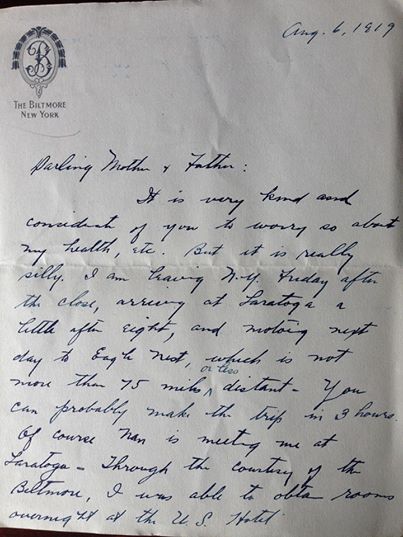 Aug. 6, 1919
B
THE BILTMORE
NEW YORK
Darling Mother & Father:
It is very kind and
considerat of you to worry so about
my health, etc. But it is really
silly. I am leaving N.Y. Friday after
the close, arriving at Saratoga a
little after eight, and motoring next
day to Eagle Nest, which is not
or less
more than 75 miles distant - You
can probably make the trip in 3 hours.
Of course Nan is meeting me at
Saratoga - Through the courtesy of the
Biltmore, I was able to obtain rooms
overnight at the U.S. Hotel